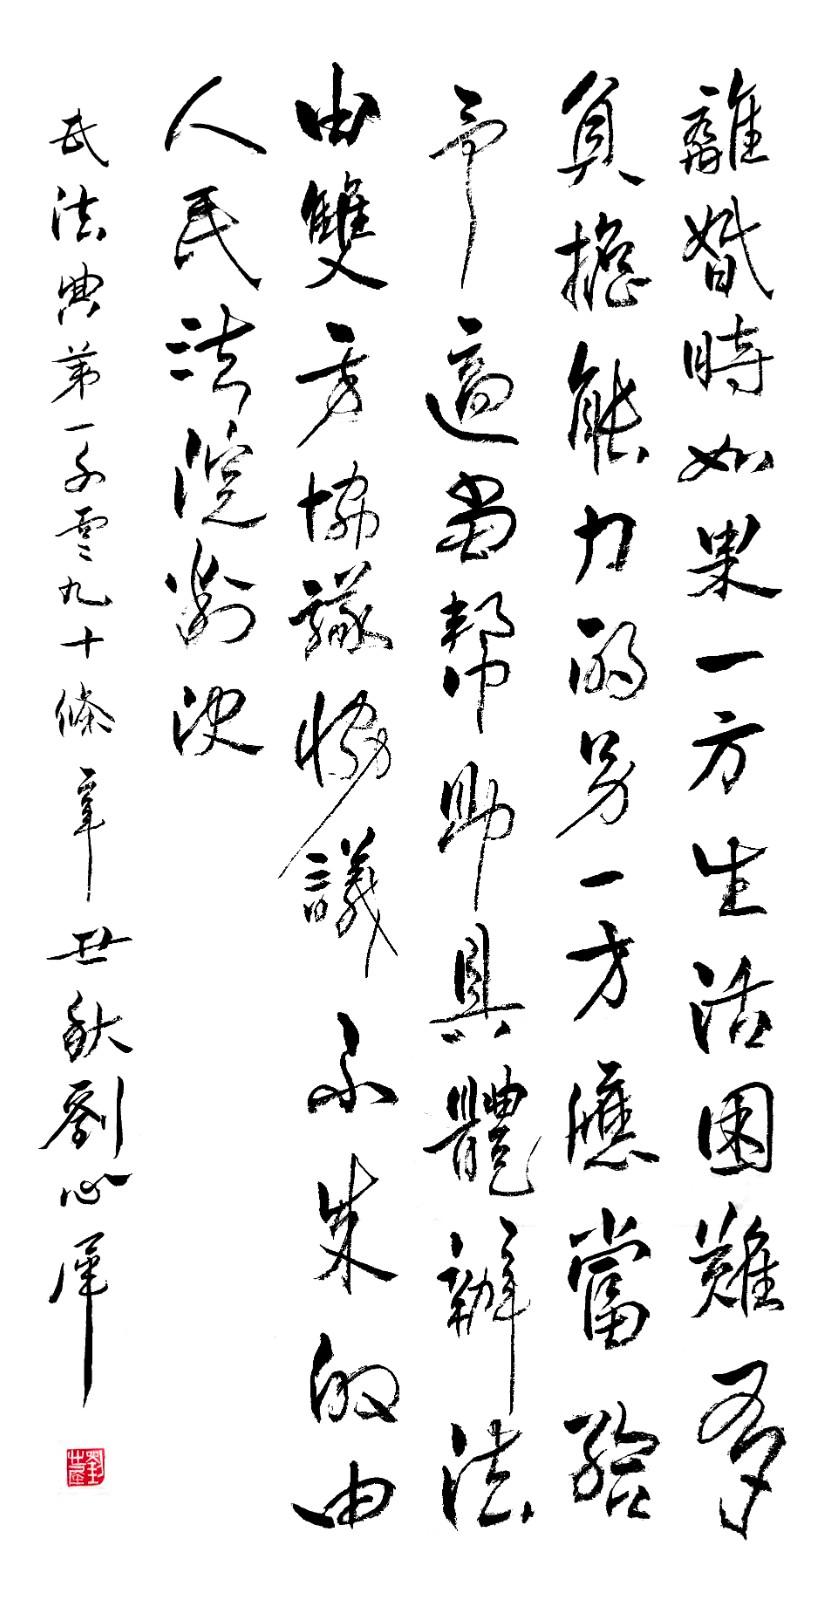 離婚時如果一方生活困難有
負擔能力的另一方應當給
予適當帮助具體辦法
由雙方協議協議不成的由
人民法院判決
民法典第一千零九十條辛丑秋劉心